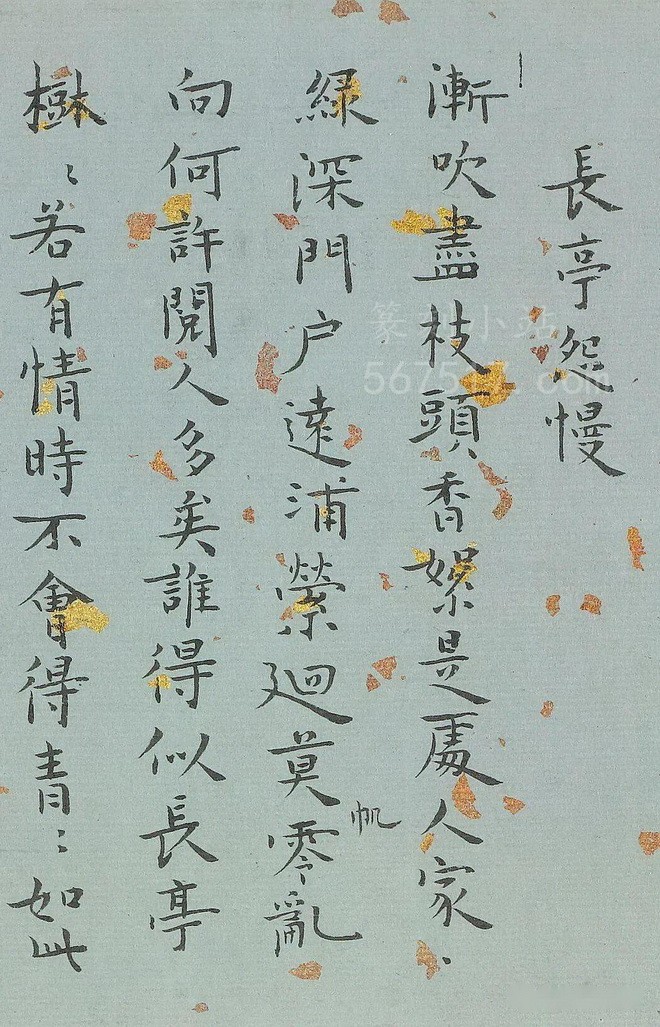 長亭怨慢
漸吹盡枝頭香絮是處人家、
綠深門户遠浦縈廻莫帆零亂
向何許閱人多矣誰得似長亭
樹〻若有情時不會得青〻如此
小站